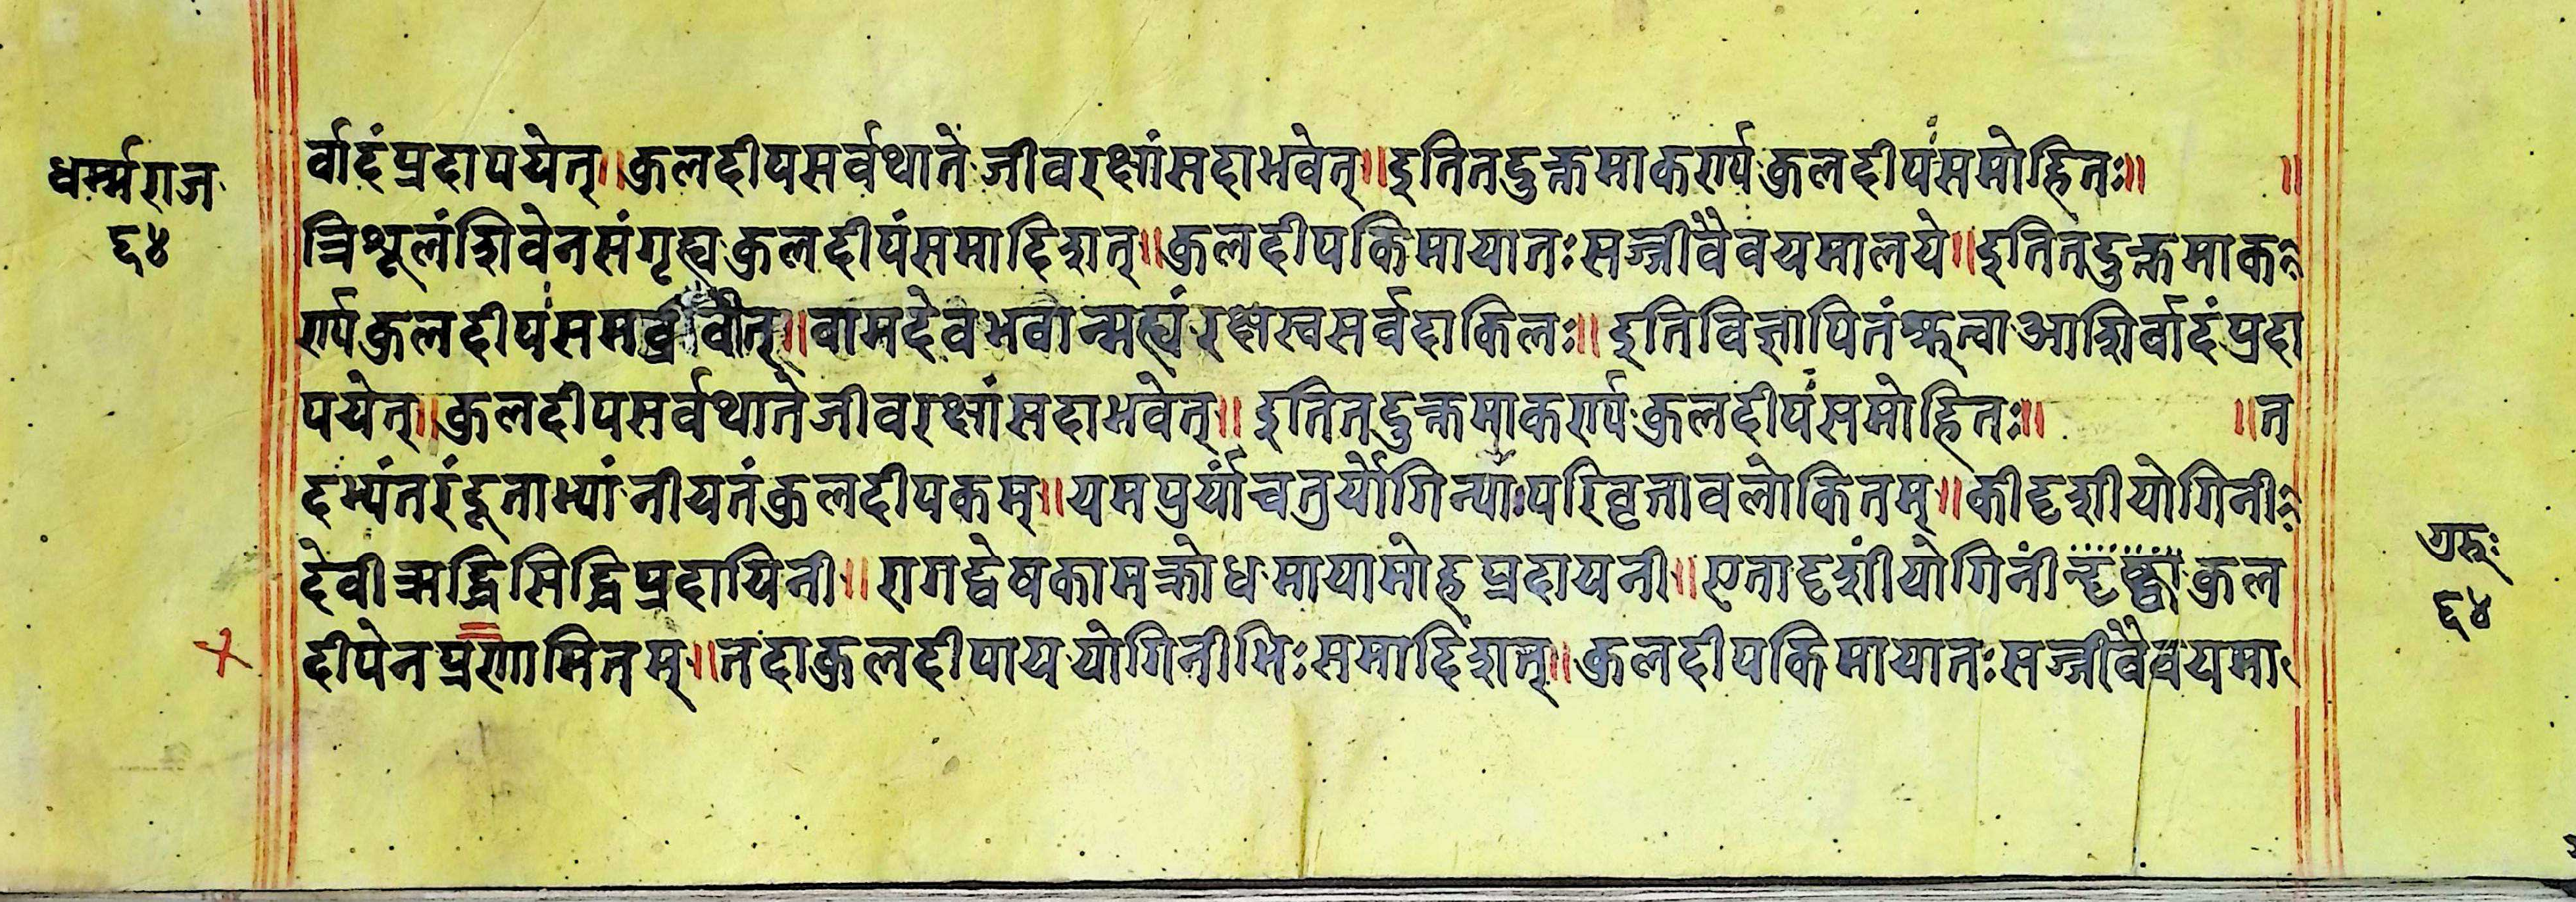 धर्म्मराज
६४
र्वादंप्रदापयेत्॥कुलदीपसर्वथाते जीवरक्षांसदाभवेत्॥इतितदुक्तमाकर्ण्य कुलदीपंसमोहितः॥ ॥
त्रिशूलंशिवेनसंगृह्य कुलदीपंसमादिशत्॥कुलदीपकिमायातःसज्जीवैवयमालये॥इतितदुक्तमाक
र्ण्यकुलदीपंसमब्रवीत्॥वामदेवभवान्मह्यंरक्षस्वसर्वदाकिलः॥इतिविज्ञापितंश्रुत्वाआशिर्वादंप्रदा
पयेत्॥कुलदीपसर्वथातेजीवरक्षांसदाभवेत्॥ इतितदुक्तमाकर्ण्य कुलदीपंसमोहितः॥ ॥त
दभ्यंतरंदूताभ्यां नीयतंकुलदीपकम्॥यमपुर्यांचतुर्योगिन्याःपरिवृतावलोकितम्॥कीदृशीयोगिनी
देवीऋद्धिसिद्धिप्रदायिनी॥रागद्वेषकामक्रोधमायामोहप्रदायनी॥एतादृशींयोगिनींन्दृष्ट्वा कुल
दीपेनप्रणामितम्॥तदाकुलदीपाययोगिनीभिःसमादिशत्॥कुलदीपकिमायातःसज्जीवैवयमा
गुरुः
६४